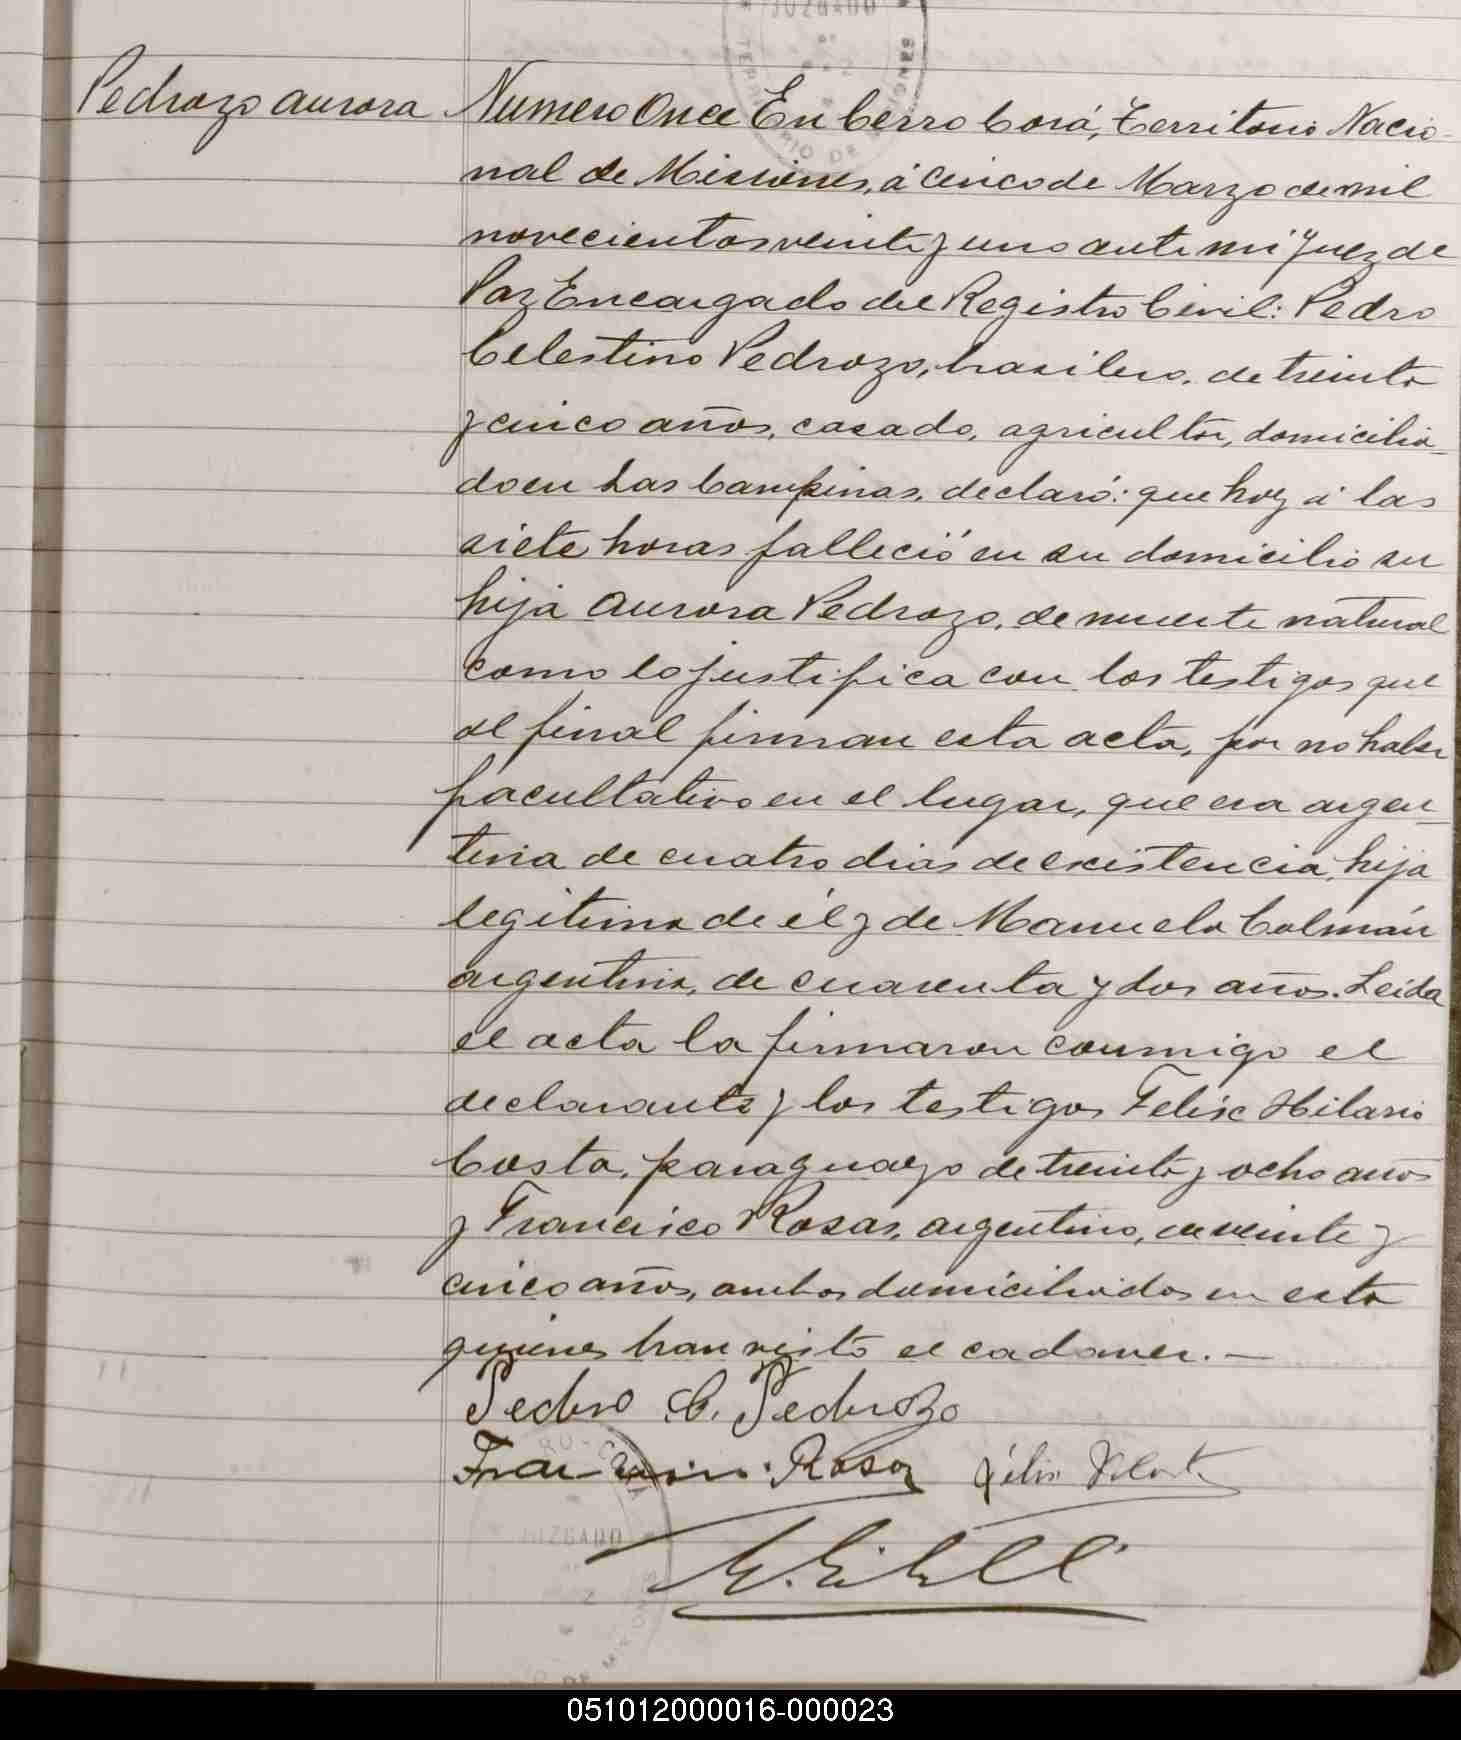 JUZGADO
Pedrozo Aurora
Numero Once En Cerro Corá, Territorio Nacio-
nal de Misiones, á cinco de Marzo de mil
novecientos veinte y uno ante mi Juez de
Paz Encargado del Registro Civil: Pedro
Celestino Pedrozo, brasilero, de treinta
y cinco años, casado, agricultor, domicilia-
do en Las Campinas, declaró: que hoy á las
siete horas falleció en su domicilio su
hija Aurora Pedrozo, de muerte natural
como lo justifica con los testigos que
al final firman esta acta, por no haber
facultativo en el lugar, que era argen-
tina de cuatro dias de existencia, hija
legitima de él y de Manuela Colmán
argentina, de cuarenta y dos años. Leida
el acta la firmaron conmigo el
declarante y los testigos Felix Hilario
Costa, paraguayo de treinta y ocho años
y Francisco Rosas, argentino, de veinte y
cinco años, ambos domiciliados en esta
quienes han visto el cadaver. —
Pedro C. Pedrozo
Rosa Félix
JUZGADO
051012000016-000023